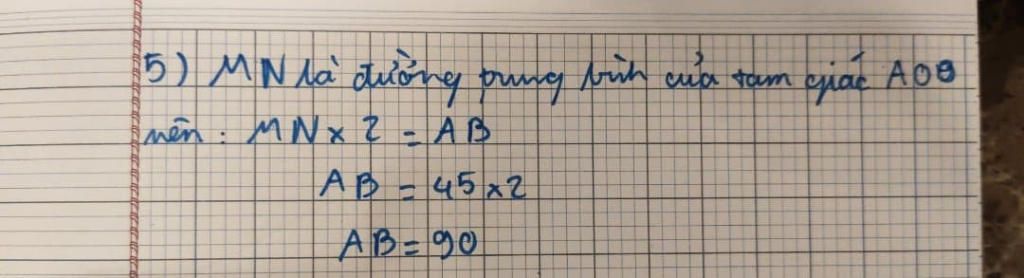 5) MN là đường trung bình của tam giác AOB
nên : MN x 2 = AB
AB = 45 x 2
AB = 90